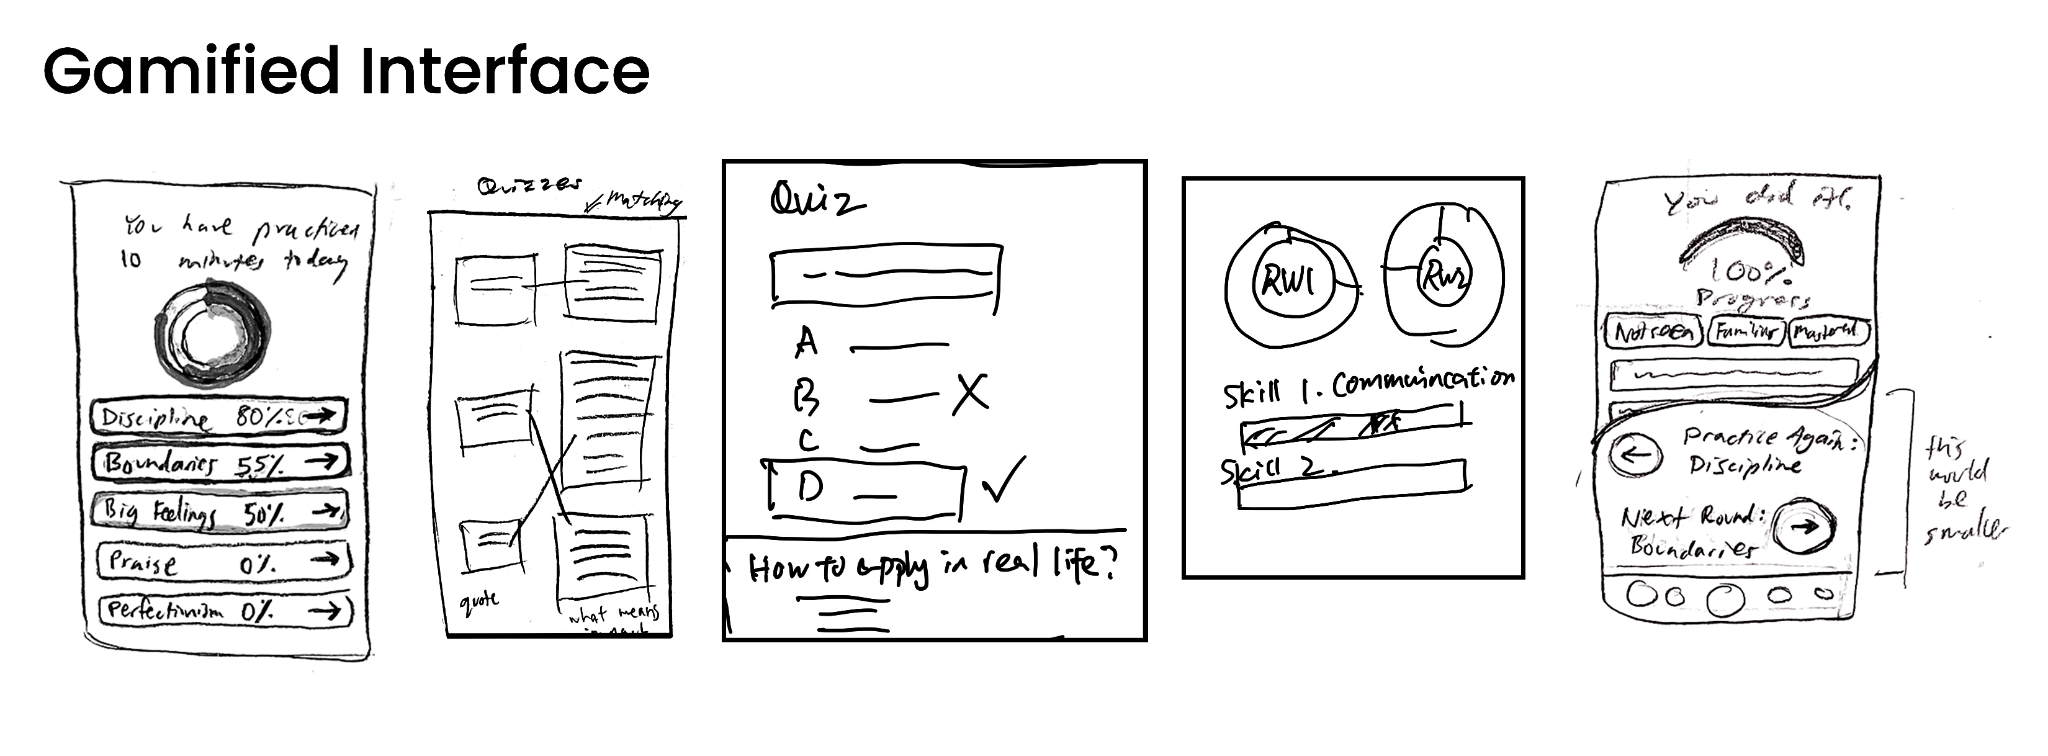 Gamified Interface
You have practiced
10 minutes today
Discipline 80%
Boundaries 55%
Big Feelings 50%
Praise 0%
Perfectionism 0%
Quizzes
matching
quote
what means
Quiz
A
B
C
D
How to apply in real life?
RW1
RW2
Skill 1. Commuincation
Skill 2.
You did it.
100%
Progress
Not seen
Familiar
Mastered
Practice Again:
Discipline
Next Round:
Boundaries
this
would
be
smaller